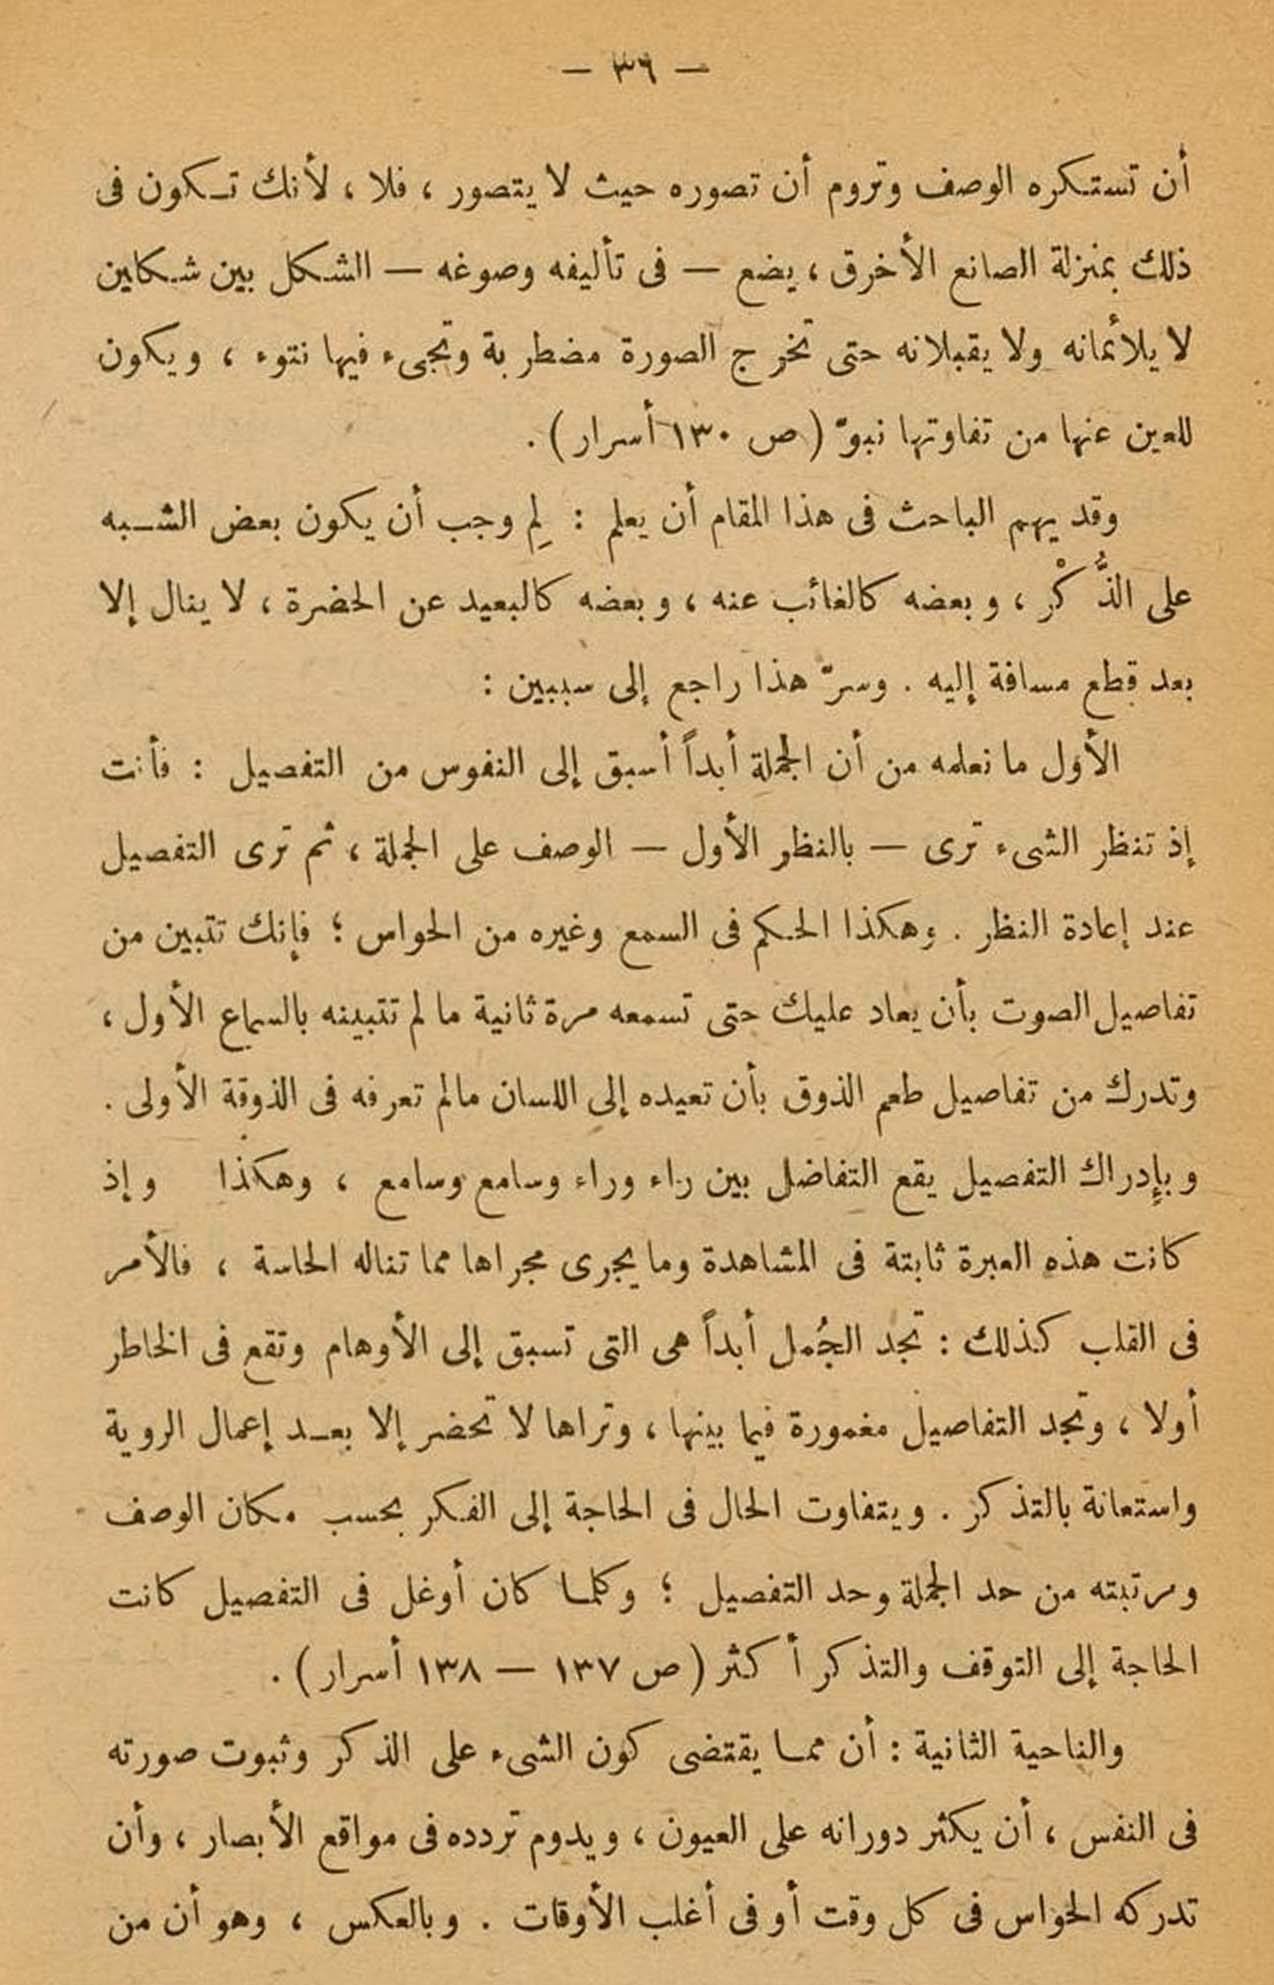 — ٣٦ —
أن تستكره الوصف وتروم أن تصوره حيث لا يتصور ، فلا ، لأنك تكون فى
ذلك بمنزلة الصانع الأخرق ، يضع — فى تأليفه وصوغه — الشكل بين شكلين
لا يلائمانه ولا يقبلانه حتى تخرج الصورة مضطربة وتجىء فيها نتوء ، ويكون
للعين عنها من تفاوتها نبوّ ( ص ١٣٠ أسرار ) .
وقد يهم الباحث فى هذا المقام أن يعلم : لِم وجب أن يكون بعض الشبه
على الذُّكْر ، وبعضه كالغائب عنه ، وبعضه كالبعيد عن الحضرة ، لا ينال إلا
بعد قطع مسافة إليه . وسرّ هذا راجع إلى سببين :
الأول ما نعلمه من أن الجملة أبداً أسبق إلى النفوس من التفصيل : فأنت
إذ تنظر الشىء ترى — بالنظر الأول — الوصف على الجملة ، ثم ترى التفصيل
عند إعادة النظر . وهكذا الحكم فى السمع وغيره من الحواس ؛ فإنك تتبين من
تفاصيل الصوت بأن يعاد عليك حتى تسمعه مرة ثانية ما لم تتبينه بالسماع الأول ،
وتدرك من تفاصيل طعم الذوق بأن تعيده إلى اللسان مالم تعرفه فى الذوقة الأولى .
وبإدراك التفصيل يقع التفاضل بين راء وراء وسامع وسامع ، وهكذا وإذ
كانت هذه العبرة ثابتة فى المشاهدة وما يجرى مجراها مما تناله الحاسة ، فالأمر
فى القلب كذلك : تجد الجُمل أبداً هى التى تسبق إلى الأوهام وتقع فى الخاطر
أولا ، وتجد التفاصيل مغمورة فيما بينها ، وتراها لا تحضر إلا بعد إعمال الروية
واستعانة بالتذكر . ويتفاوت الحال فى الحاجة إلى الفكر بحسب مكان الوصف
ومرتبته من حد الجملة وحد التفصيل ؛ وكلما كان أوغل فى التفصيل كانت
الحاجة إلى التوقف والتذكر أكثر ( ص ١٣٧ — ١٣٨ أسرار ) .
والناحية الثانية : أن مما يقتضى كون الشىء على الذكر وثبوت صورته
فى النفس ، أن يكثر دورانه على العيون ، ويدوم تردده فى مواقع الأبصار ، وأن
تدركه الحواس فى كل وقت أو فى أغلب الأوقات . وبالعكس ، وهو أن من